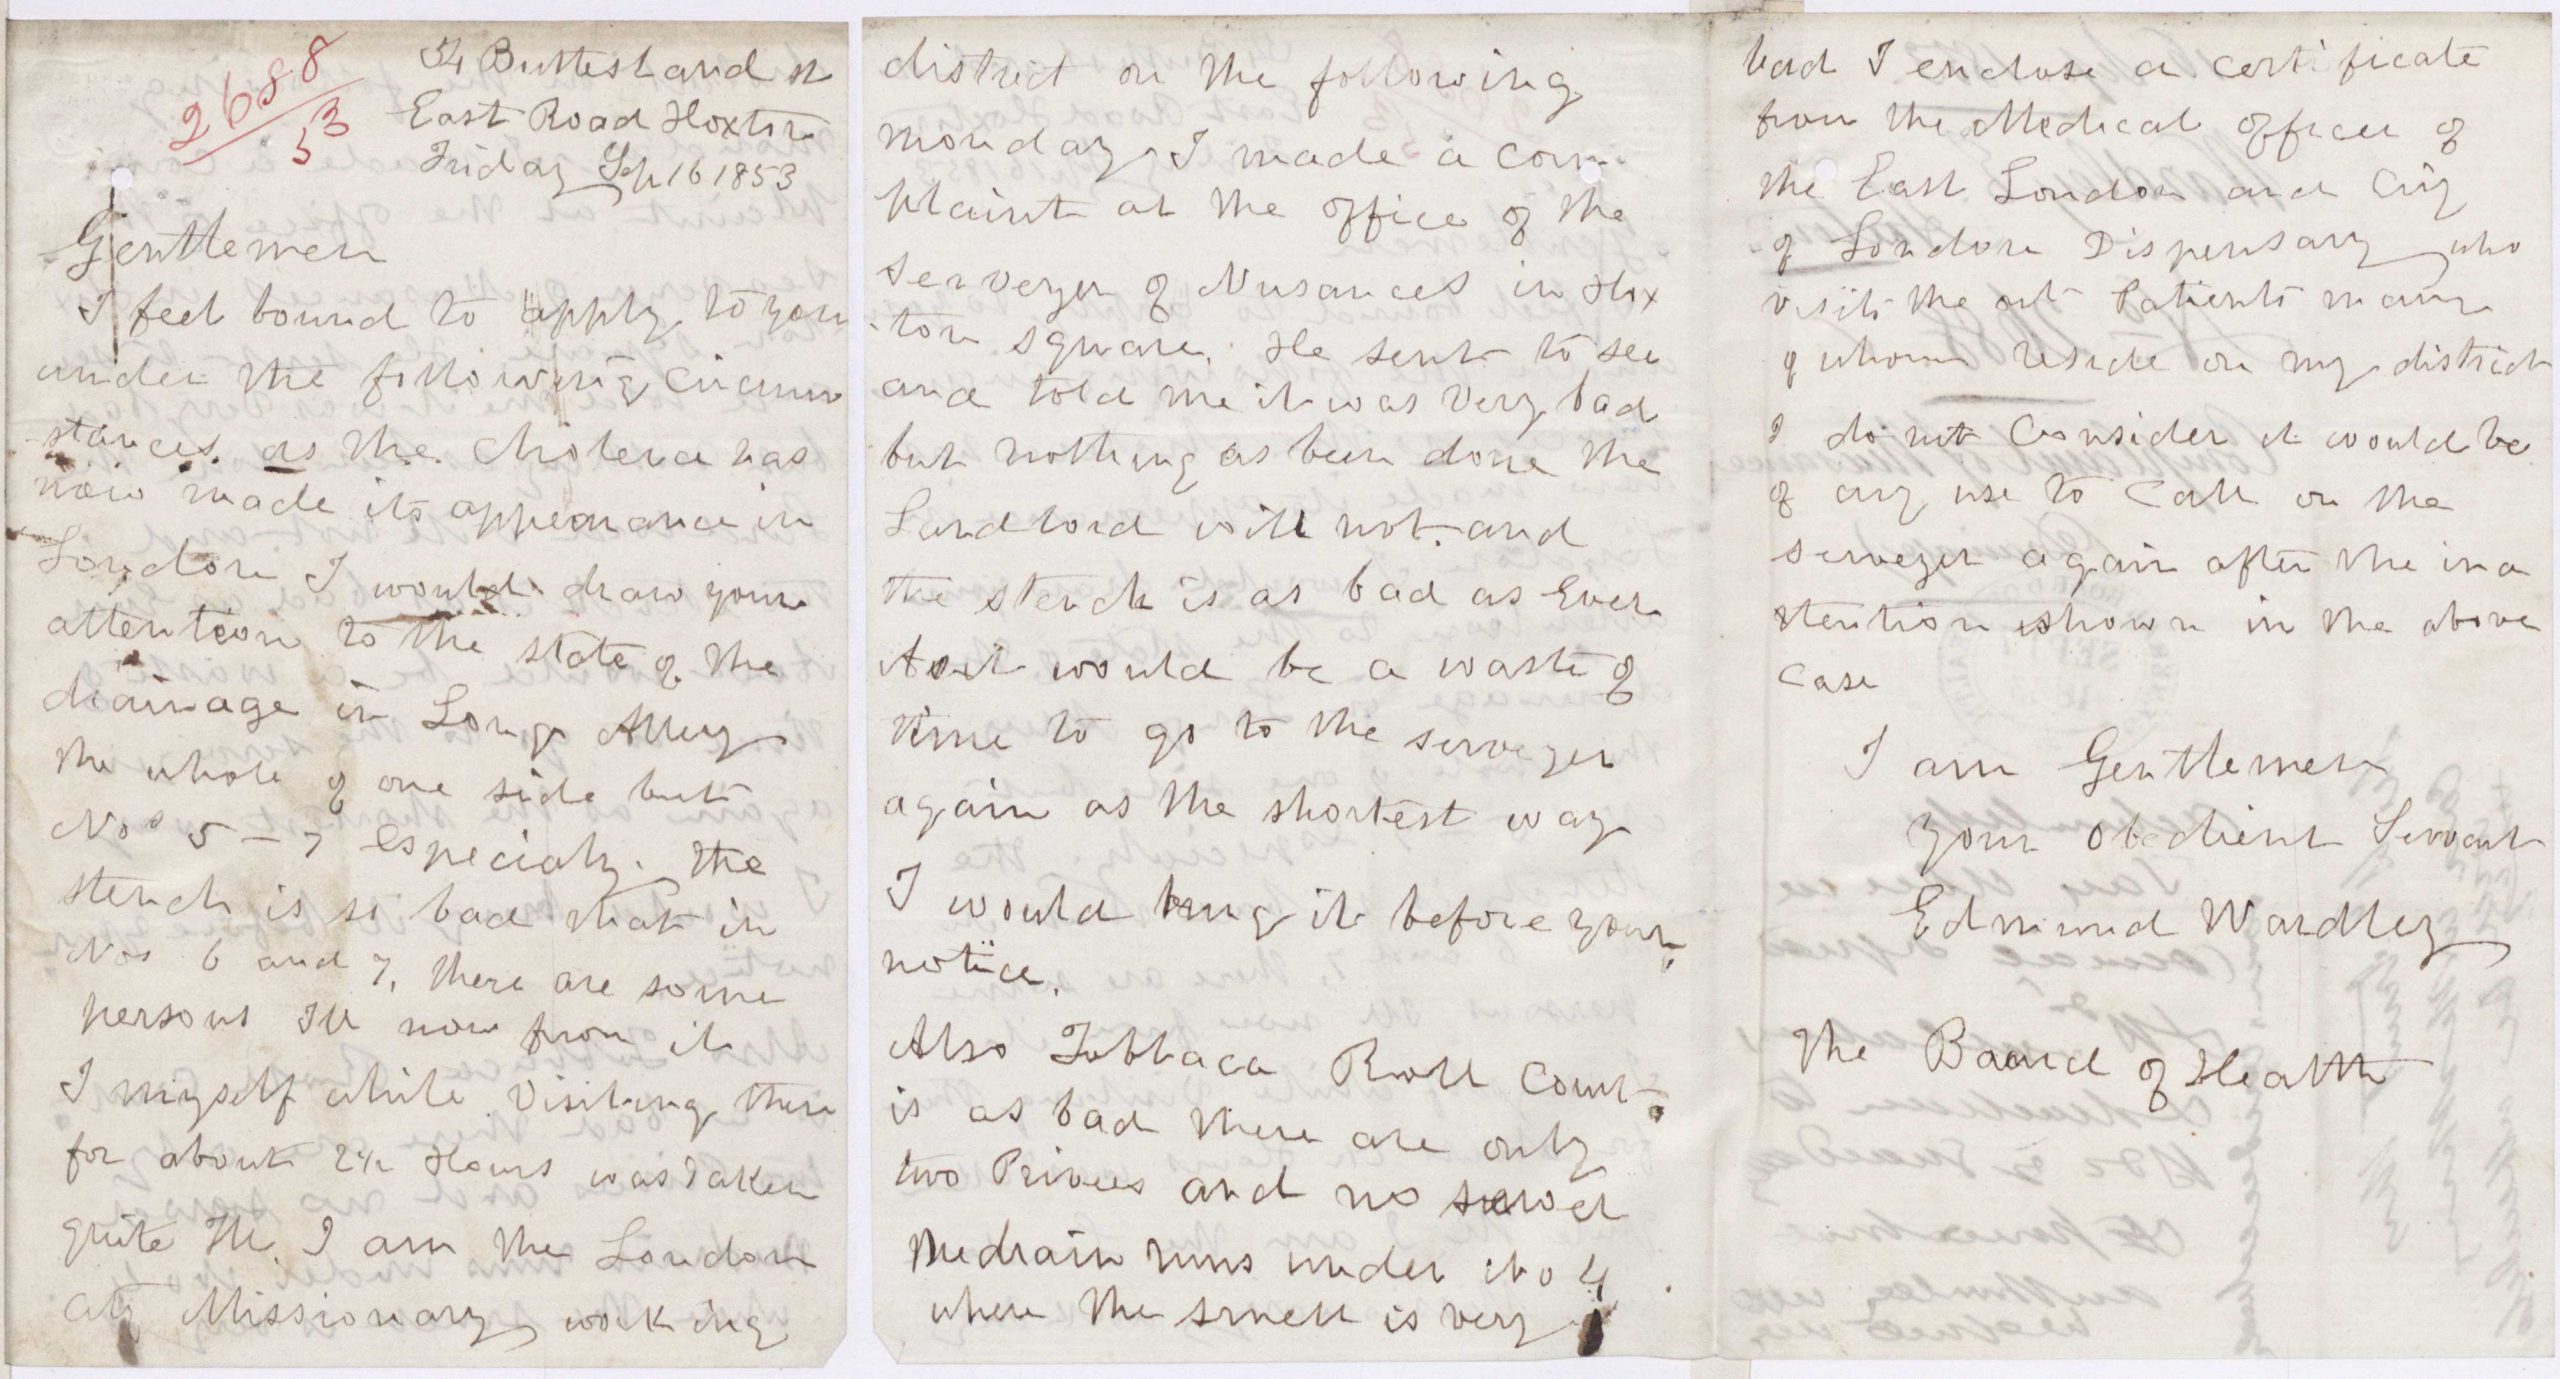 2688
53
54 Buttesland st
East Road Hoxton
Friday Sep 16 1853
Gentlemen
I feel bound to apply to you
under the following circum
stances. as the cholera has
now made its appearance in
London I would draw your
attention to the state of the
drainage in Long Alley
the whole of one side but
Nos 5 – 7 especialy. the
stench is so bad that in
Nos 6 and 7, there are some
persons Ill now from it
I myself while visiting there
for about 2½ Hours was taken
quite Ill. I am the London
City Missionary working
district on the following
monday I made a com
plaint at the office of the
Serveyer of Nusances in Hox
ton square. He sent to see
and told me it was very bad
but nothing as been done the
Landlord will not and
the stench is as bad as Ever
As it would be a waste of
time to go to the serveyer
again as the shortest way
I would bring it before your
notice.
Also Tobbaca Roll Court
is as bad there are only
two Privies and no sewer
the drain runs under No 4
where the smell is very
bad I enclose a certificate
from the Medical officer of
the East London and City
of London Dispensary who
visits the out Patients many
of whom reside on my district
I do not Consider it would be
of any use to Call on the
serveyer again after the ina
ttention shown in the above
case
I am Gentlemen
your Obedient Servant
Edmund Wardley
The Board of Health